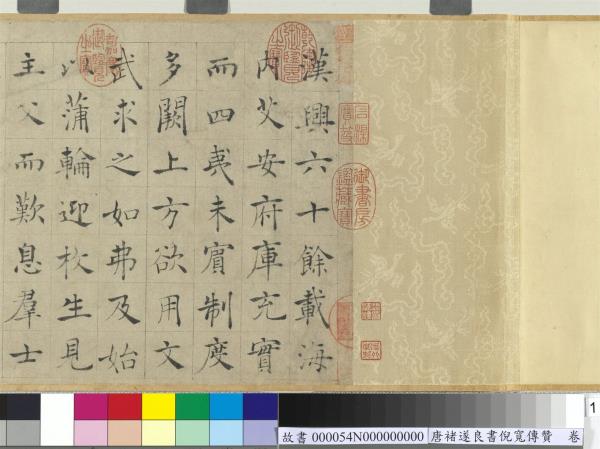 石渠寶笈
御書房鑑藏寶
漢興六十餘載海
內艾安府庫充實
而四夷未賓制度
多闕上方欲用文
武求之如弗及始
以蒲輪迎枚生見
主父而歎息羣士
故書 000054N000000000 唐褚遂良書倪寬傳贊 卷
1